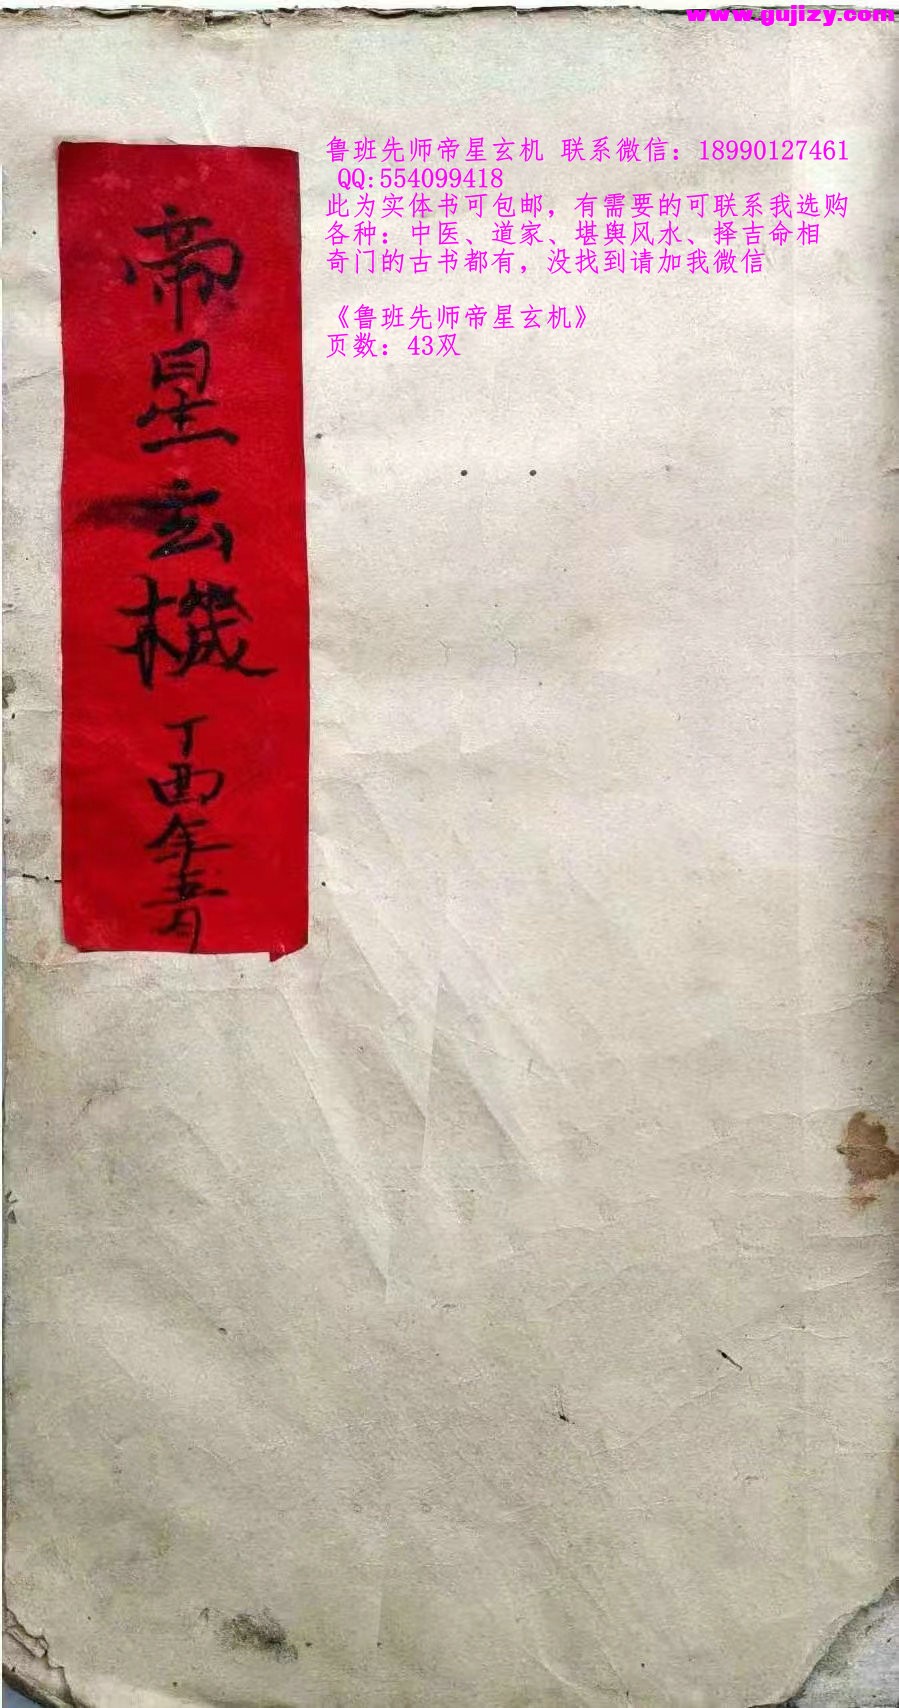 www.gujizy.com
鲁班先师帝星玄机 联系微信：18990127461
QQ:554099418
此为实体书可包邮，有需要的可联系我选购
各种：中医、道家、堪舆风水、择吉命相
奇门的古书都有，没找到请加我微信
《鲁班先师帝星玄机》
页数：43双
帝星玄機
丁酉年